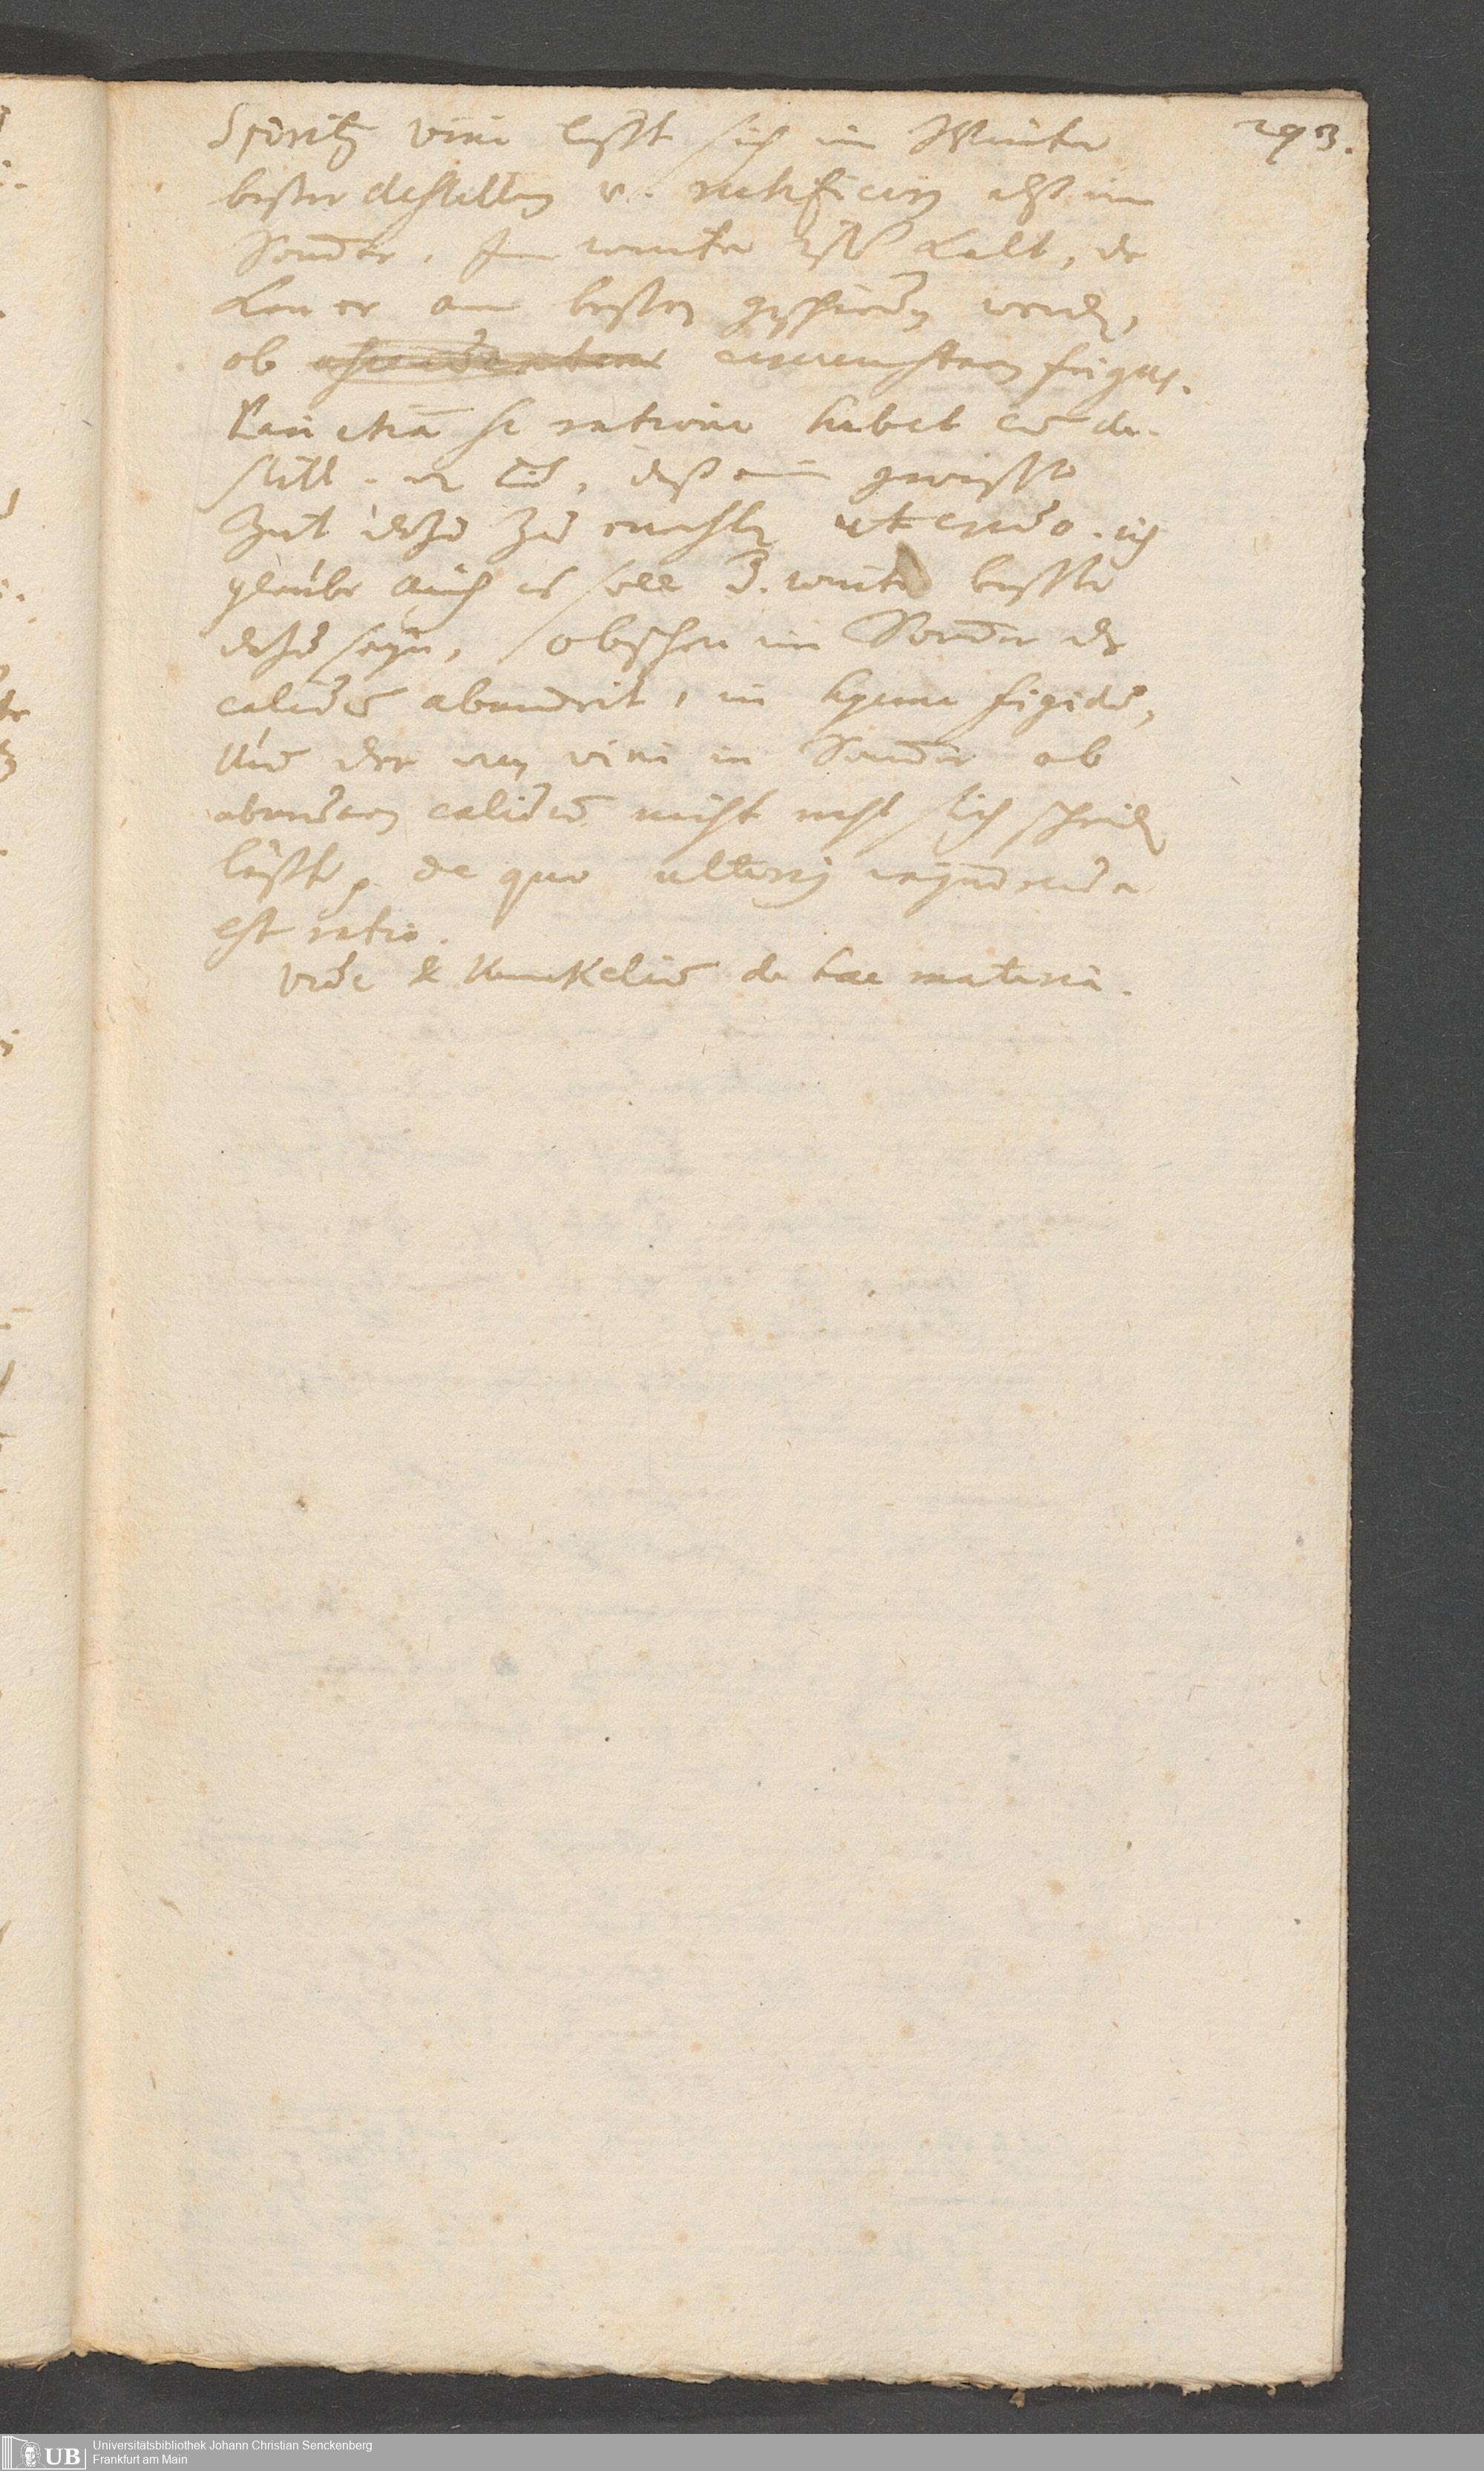 293.
Spirit9 vini lesst sich im Winter
besser destillen v. rectificirn alß im
Som̄er. Im winter ists kalt, da
kan er am besten geschieden werden,
ob circumstans frigus.
ratione habet cum de-
still. daß eine gewisse
Zeit dazu zu erwehlen ich
glaube auch es soll d. winter besser
dazu seyn, obschon im Som̄er das
calidum abundirt, in hyeme frigidum,
Und der vini in Som̄er ob
abundans calidum nicht recht sich scheiden
lässt, de quo ulterius
est ratio.
Vide & Kunkelium de hac materia.
Universitätsbibliothek Johann Christian Senckenberg
Frankfurt am Main
UB